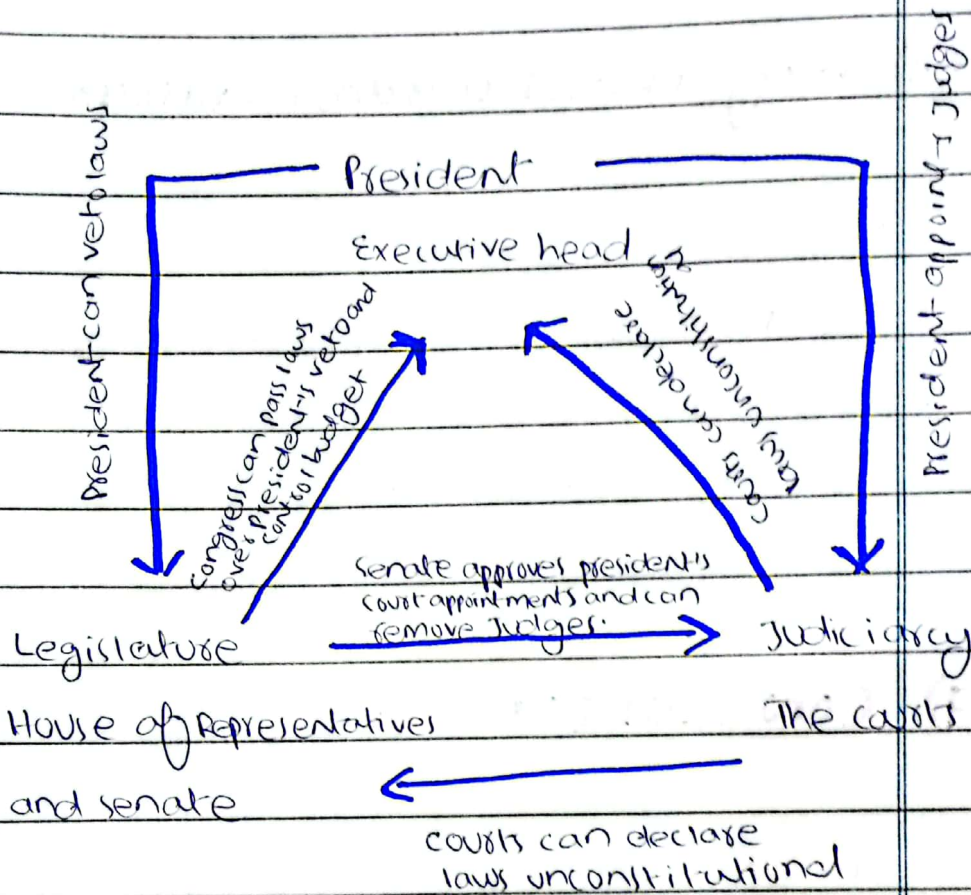 President
Executive head
President can veto laws
President appoint → Judges
Congress can pass laws
over president's veto and
control budget
courts can declare
laws unconstitution
al
Senate approves president's
court appointments and can
remove Judges.
Legislature
Judiciary
House of Representatives
The courts
and senate
courts can declare
laws unconstitutional